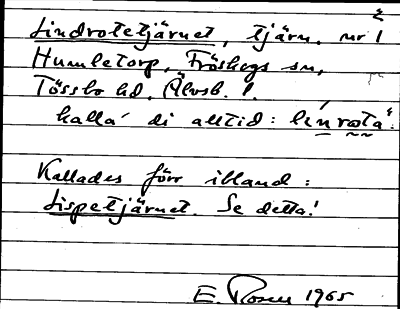 2
Lindrotetjärnet, tjärn. nr 1
Humletorp, Fröskogs sn,
Tössbo hd. Älvsb. l.
kalla' di alltid: li'nrota":
Kallades förr ibland:
Lispetjärnet. Se detta!
E. Rosen 1965